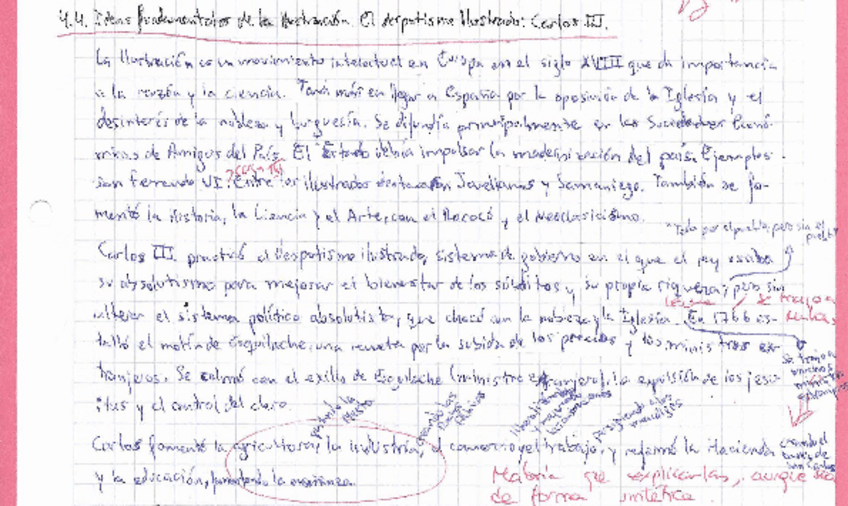 4.4. Ideas fundamentales de la Ilustración. El despotismo Ilustrado: Carlos III.
La Ilustración es un movimiento intelectual en Europa en el siglo XVIII que da importancia
a la razón y la ciencia. Tardó más en llegar a España por la oposición de la Iglesia y el
desinterés de la nobleza y burguesía. Se difundía principalmente en las Sociedades Econó-
micas de Amigos del País. El Estado debía impulsar la modernización del país. Ejemplos
son Fernando VI. Entre los ilustrados destacaron Jovellanos y Samaniego. También se fo-
mentó la Historia, la Ciencia y el Arte, con el Rococó y el Neoclasicismo.
"Todo por el pueblo, pero sin el pueblo"
Carlos III practicó el despotismo ilustrado, sistema de gobierno en el que el rey usaba
su absolutismo para mejorar el bienestar de los súbditos y su propia riqueza, pero sin
alterar el sistema político absolutista, que chocó con la nobleza y la Iglesia. En 1766 es-
talló el motín de Esquilache, una revuelta por la subida de los precios y los ministros ex-
tranjeros. Se calmó con el exilio de Esquilache (ministro extranjero), la expulsión de los jesu-
itas y el control del clero.
Se trajo a muchos ministros
Carlos fomentó la agricultura, la industria, el comercio y el trabajo, y reformó la Hacienda
y la educación, fomentando la enseñanza.
Habría que explicarlas, aunque sea
de forma sintética.